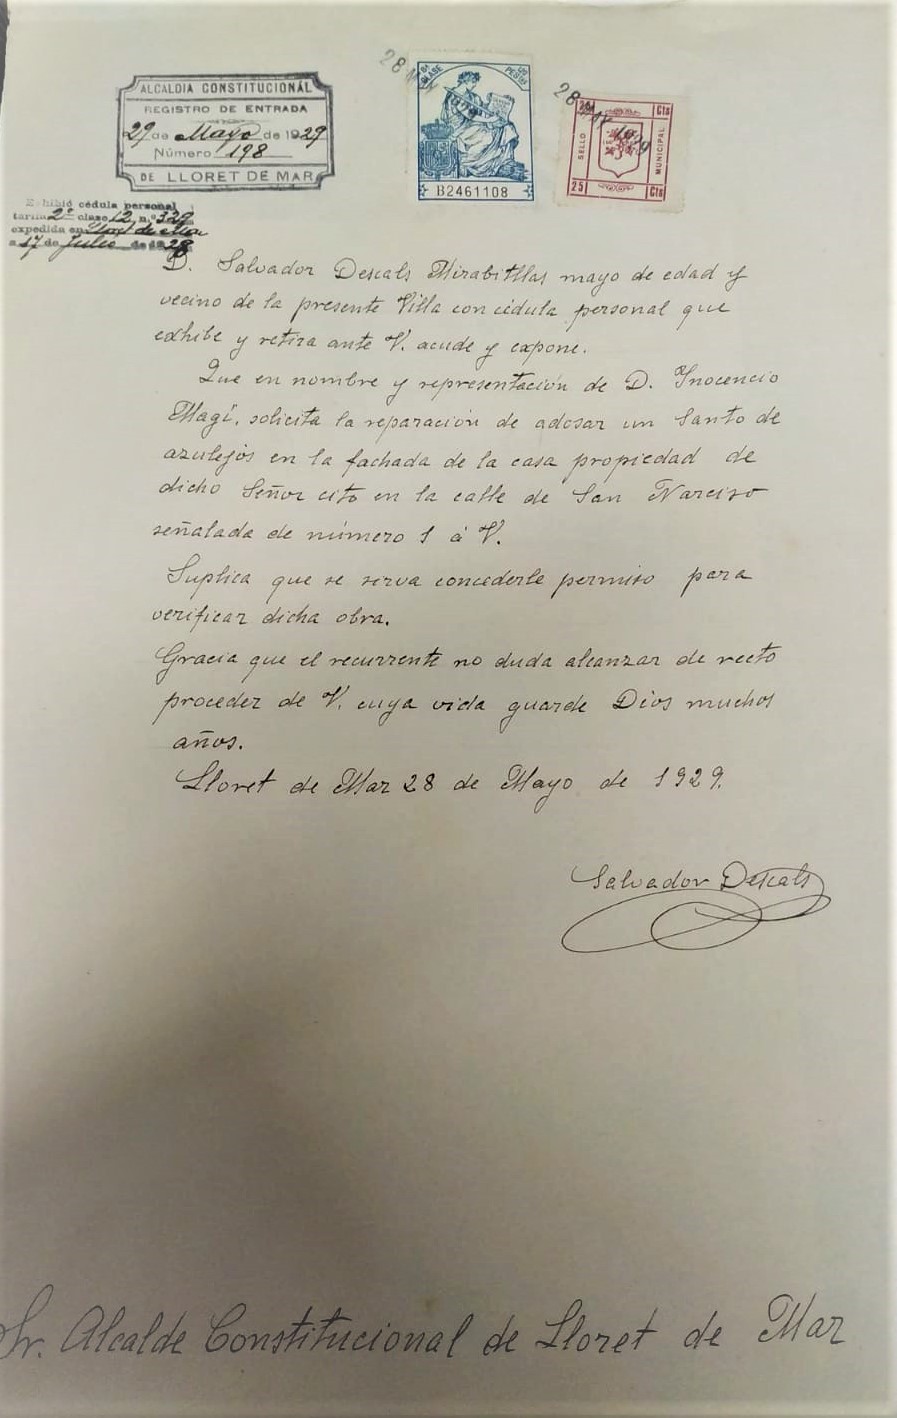 ALCALDIA CONSTITUCIONAL
REGISTRO DE ENTRADA
29 de Mayo de 1929
Número 198
DE LLORET DE MAR
28 MAY 1929
8ª CLASE
PESETAS
B2461108
28 MAY 1929
25 Cts
SELLO MUNICIPAL
25 Cts
Exhibió cédula personal
tarifa 2ª clase 12 n.º 329
expedida en Lloret de Mar
a 17 de Julio de 1928
D. Salvador Descals Mirabitllas mayo de edad y
vecino de la presente Villa con cédula personal que
exhibe y retira ante V. acude y expone.
Que en nombre y representación de D. Inocencio
Magí, solicita la reparación de adosar un Santo de
azulejos en la fachada de la casa propiedad de
dicho Señor cito en la calle de San Narciso
señalada de número 1 á V.
Suplica que se sirva concederle permiso para
verificar dicha obra.
Gracia que el recurrente no duda alcanzar de recto
proceder de V. cuya vida guarde Dios muchos
años.
Lloret de Mar 28 de Mayo de 1929.
Salvador Descals
Sr. Alcalde Constitucional de Lloret de Mar